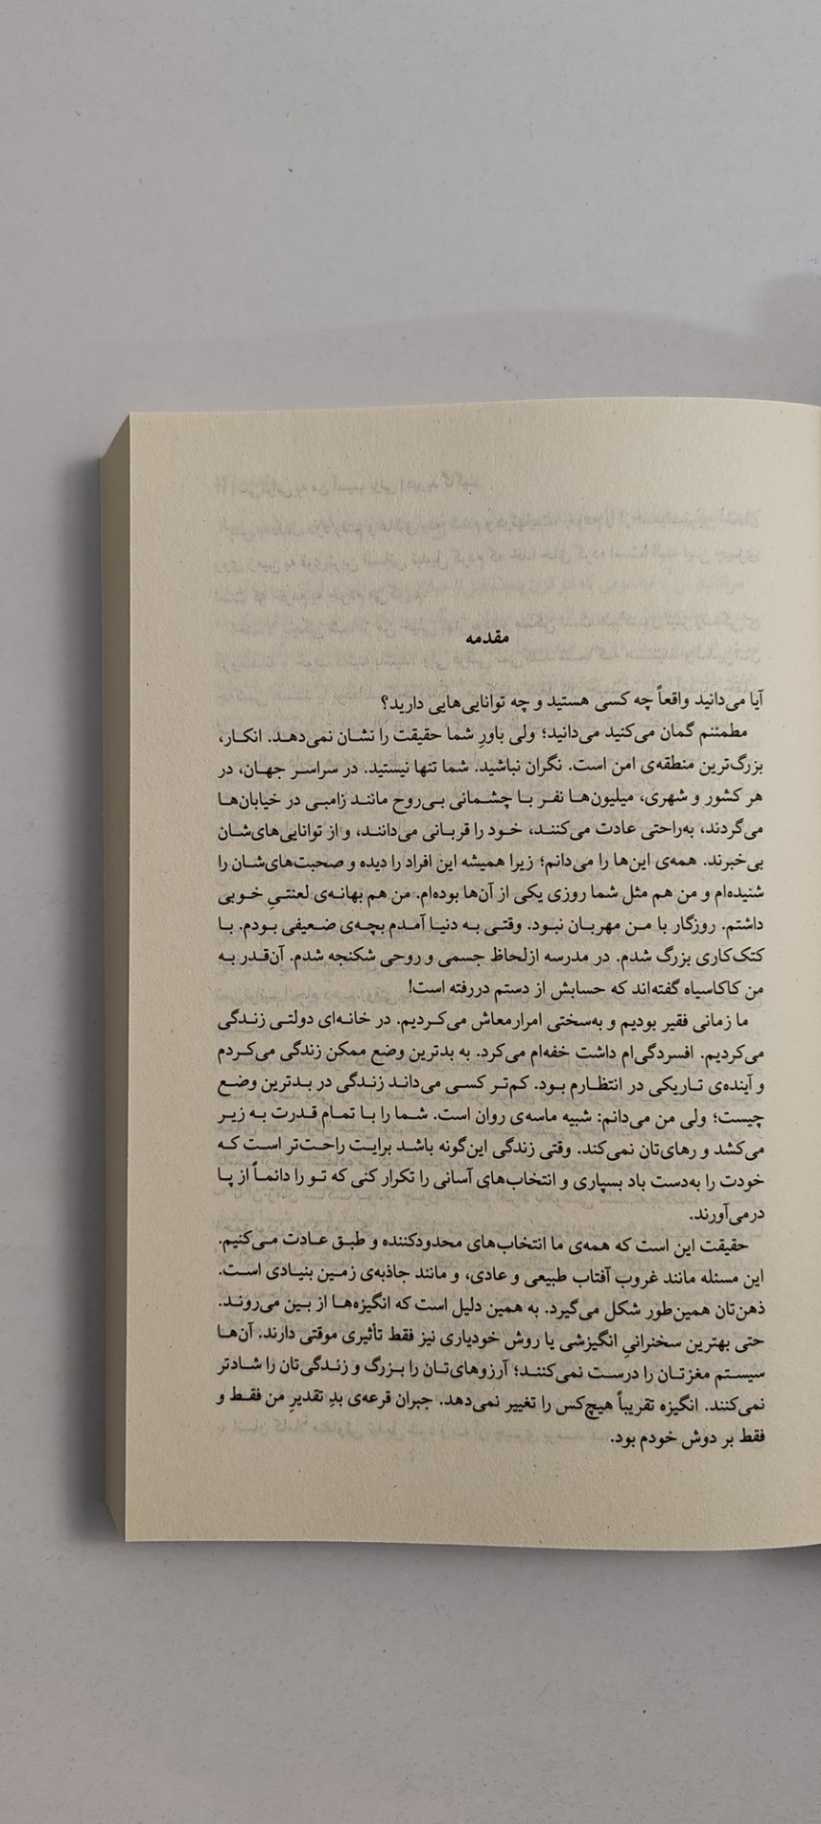 مقدمه
آیا می‌دانید واقعاً چه کسی هستید و چه توانایی‌هایی دارید؟
مطمئنم گمان می‌کنید می‌دانید؛ ولی باورِ شما حقیقت را نشان نمی‌دهد. انکار،
بزرگ‌ترین منطقه‌ی امن است. نگران نباشید. شما تنها نیستید. در سراسر جهان، در
هر کشور و شهری، میلیون‌ها نفر با چشمانی بی‌روح مانند زامبی در خیابان‌ها
می‌گردند، به‌راحتی عادت می‌کنند، خود را قربانی می‌دانند، و از توانایی‌های‌شان
بی‌خبرند. همه‌ی این‌ها را می‌دانم؛ زیرا همیشه این افراد را دیده و صحبت‌های‌شان را
شنیده‌ام و من هم مثل شما روزی یکی از آن‌ها بوده‌ام. من هم بهانه‌ی لعنتیِ خوبی
داشتم. روزگار با من مهربان نبود. وقتی به دنیا آمدم بچه‌ی ضعیفی بودم. با
کتک‌کاری بزرگ شدم. در مدرسه ازلحاظ جسمی و روحی شکنجه شدم. آن‌قدر به
من کاکاسیاه گفته‌اند که حسابش از دستم دررفته است!
ما زمانی فقیر بودیم و به‌سختی امرارمعاش می‌کردیم. در خانه‌ای دولتی زندگی
می‌کردیم. افسردگی‌ام داشت خفه‌ام می‌کرد. به بدترین وضع ممکن زندگی می‌کردم
و آینده‌ی تاریکی در انتظارم بود. کم‌تر کسی می‌داند زندگی در بدترین وضع
چیست؛ ولی من می‌دانم: شبیه ماسه‌ی روان است. شما را با تمام قدرت به زیر
می‌کشد و رهای‌تان نمی‌کند. وقتی زندگی این‌گونه باشد برایت راحت‌تر است که
خودت را به‌دست باد بسپاری و انتخاب‌های آسانی را تکرار کنی که تو را دائماً از پا
درمی‌آورند.
حقیقت این است که همه‌ی ما انتخاب‌های محدودکننده و طبق عادت می‌کنیم.
این مسئله مانند غروب آفتاب طبیعی و عادی، و مانند جاذبه‌ی زمین بنیادی است.
ذهن‌تان همین‌طور شکل می‌گیرد. به همین دلیل است که انگیزه‌ها از بین می‌روند.
حتی بهترین سخنرانیِ انگیزشی یا روش خودیاری نیز فقط تأثیری موقتی دارند. آن‌ها
سیستم مغزتان را درست نمی‌کنند؛ آرزوهای‌تان را بزرگ و زندگی‌تان را شادتر
نمی‌کنند. انگیزه تقریباً هیچ‌کس را تغییر نمی‌دهد. جبران قرعه‌ی بدِ تقدیرِ من فقط و
فقط بر دوش خودم بود.